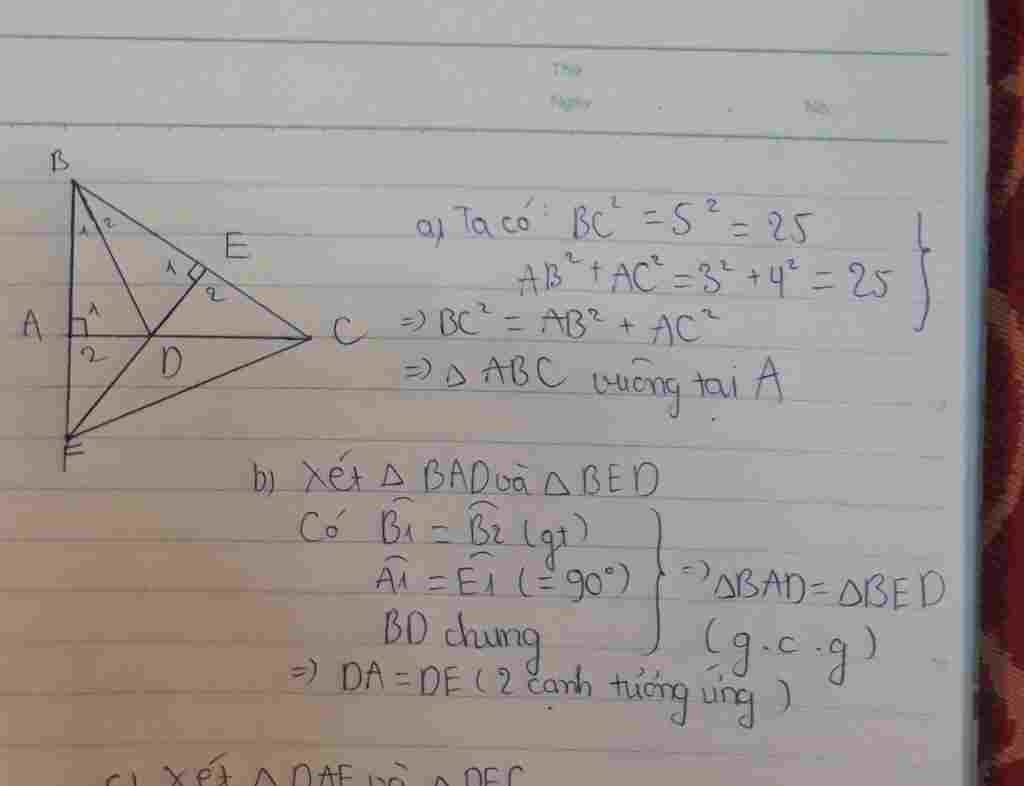 Thứ
Ngày
No.
B
1 2
E
1
2
A
1
2
D
C
F
a) Ta có: BC² = 5² = 25
AB² + AC² = 3² + 4² = 25
=> BC² = AB² + AC²
=> Δ ABC vuông tại A
b) Xét Δ BAD và Δ BED
Có B̂1 = B̂2 (gt)
Â1 = Ê1 (= 90°)
=> ΔBAD = ΔBED
BD chung
(g.c.g)
=> DA = DE (2 cạnh tương ứng)
c) Xét Δ DAF và Δ DEC